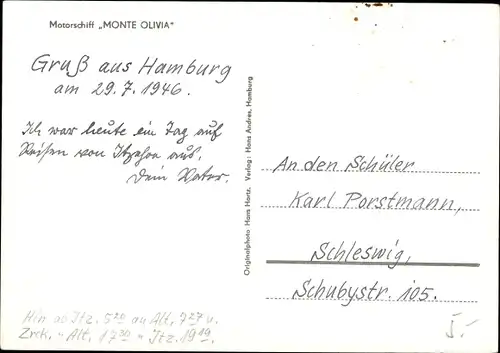 Motorschiff „MONTE OLIVIA"
Gruß aus Hamburg
am 29.7.1946.
Ich war heute ein Tag auf
Reisen von Itzehoe aus.
Dein Vater.
Hin ab Itz. 5²⁰ an Alt, 7²⁷ u.
Zrck. " Alt, 17³⁰ " Itz. 19¹⁹.
Originalphoto Hans Hartz. Verlag: Hans Andres, Hamburg
An den Schüler
Karl Porstmann,
Schleswig,
Schubystr. 105.